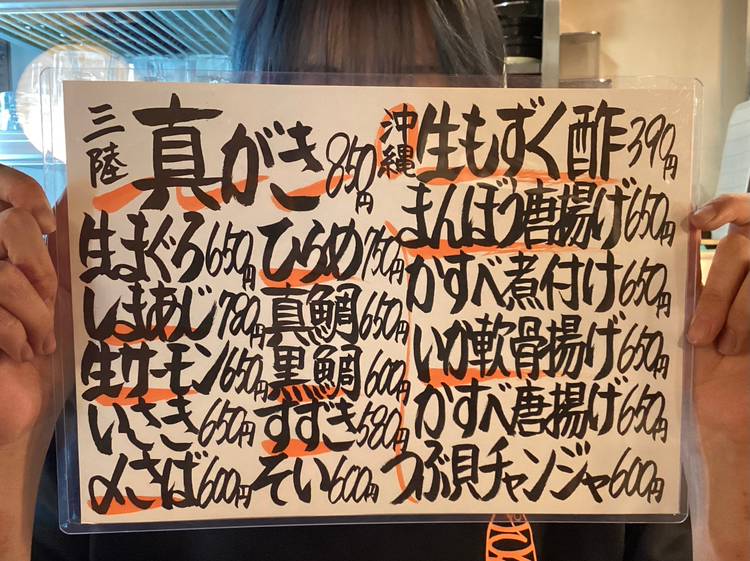 三陸 真がき 850円
生まぐろ 650円 ひらめ 750円
しまあじ 780円 真鯛 650円
生サーモン 650円 黒鯛 600円
いさき 650円 すずき 580円
〆さば 600円 そい 600円
沖縄 生もずく酢 390円
まんぼう唐揚げ 650円
かすべ煮付け 650円
いか軟骨揚げ 650円
かすべ唐揚げ 650円
つぶ貝チャンジャ 600円